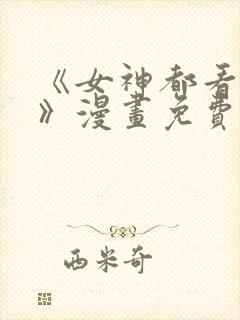 《女神都看
》漫畫免費
西米奇